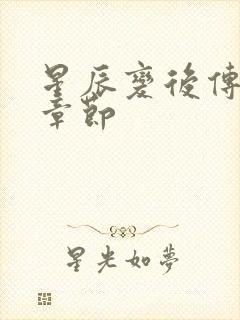 星辰變後傳
章節
星光如夢